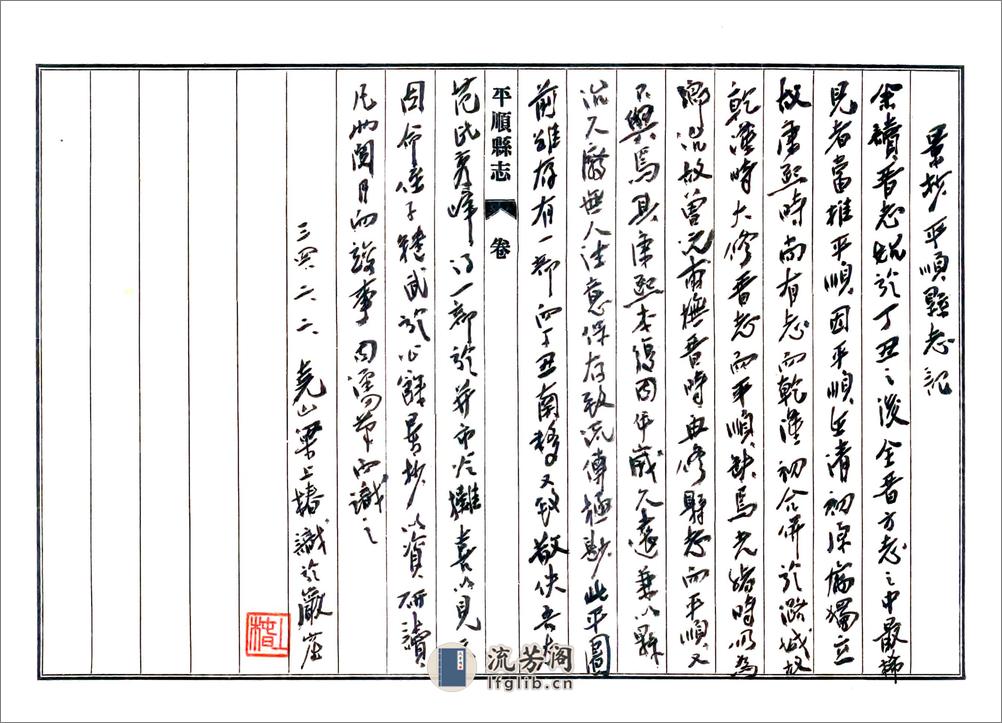 景抄平順縣志記
余讀晉志始於丁丑之後全晉方志之中最稀
見者當推平順因平順在清初係屬獨立
故康熙時尚有志而乾隆初合併於潞城故
乾隆時大修晉志而平順缺焉光緒時仍為
鄉況故曾沅甫撫晉時再修縣志而平順又
不與焉其康熙本復因年歲久遠兼以縣
治久廢無人注意保存致流傳極尠此平圖
前雖存有一部而丁丑南移又致散佚吾友
平順縣志 卷
峰得一部於并市冷攤喜以見示
因命侄子健武於公餘景抄以資研讀
凡兩閱月而竣事因濡筆而識之
三四、二、二、堯山梁上椿識於
上椿
流芳阁
lfglib.cn